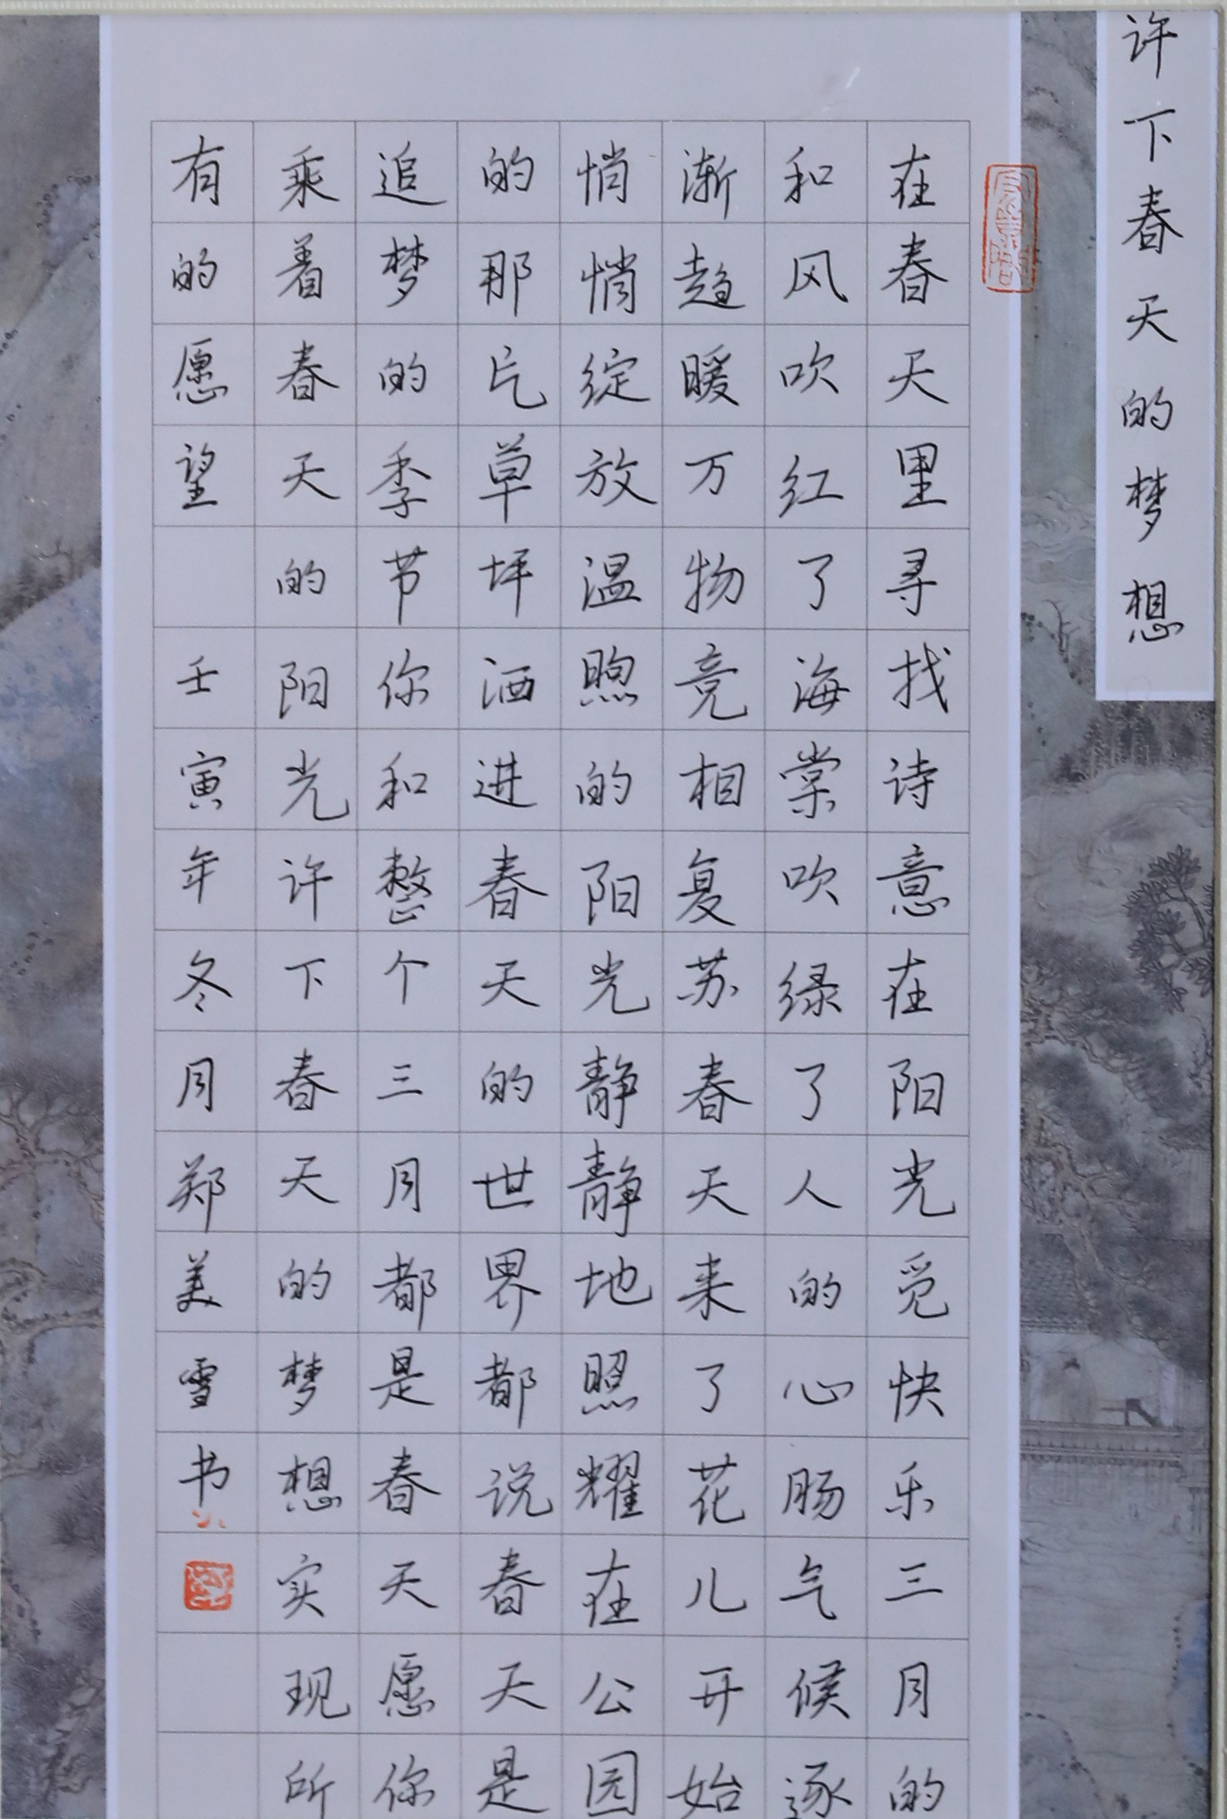 许下春天的梦想
在春天里寻找诗意在阳光觅快乐三月的
和风吹红了海棠吹绿了人的心肠气候逐
渐趋暖万物竞相复苏春天来了花儿开始
悄悄绽放温煦的阳光静静地照耀在公园
的那片草坪洒进春天的世界都说春天是
追梦的季节你和整个三月都是春天愿你
乘着春天的阳光许下春天的梦想实现所
有的愿望 壬寅年冬月郑美雪书